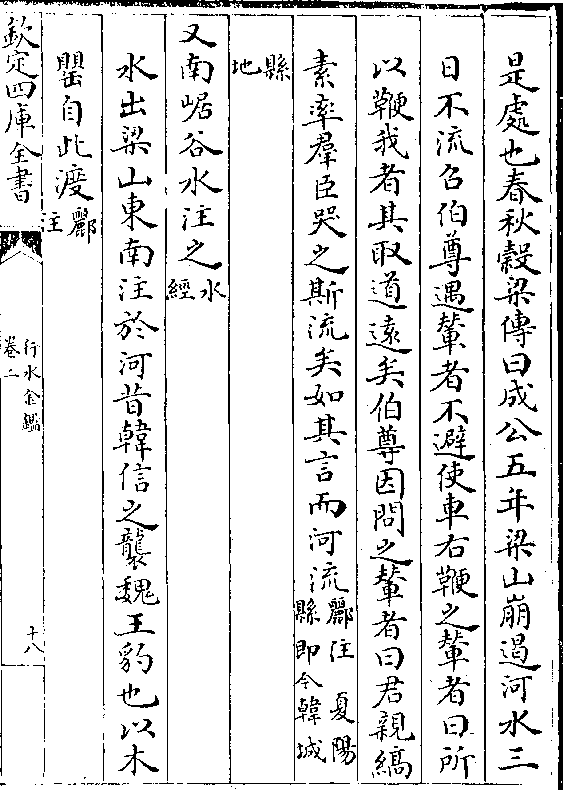 是處也春秋穀梁傳曰成公五年梁山崩遏河水三
日不流召伯尊遇輦者不避使車右鞭之輦者曰所
以鞭我者其取道遠矣伯尊因問之輦者曰君親縞
素率羣臣哭之斯流矣如其言而河流酈注 夏陽
縣即今韓城
縣
地
又南崌谷水注之水
經
水出梁山東南注於河昔韓信之襲魏王豹也以木
罌自此渡酈
注
欽定四庫全書
行水金鑑
卷二
十八